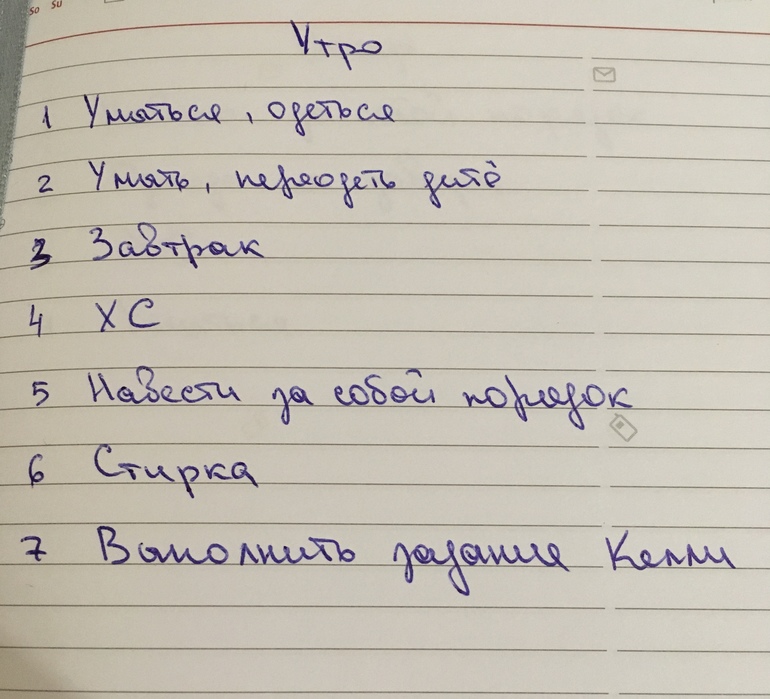 so su
Утро
1 Умыться, одеться
2 Умыть, переодеть дитё
3 Завтрак
4 ХС
5 Навести за собой порядок
6 Стирка
7 Выполнить задание Келли